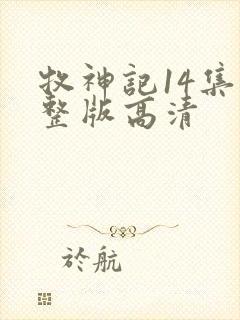 牧神記14集
整版高清
於航